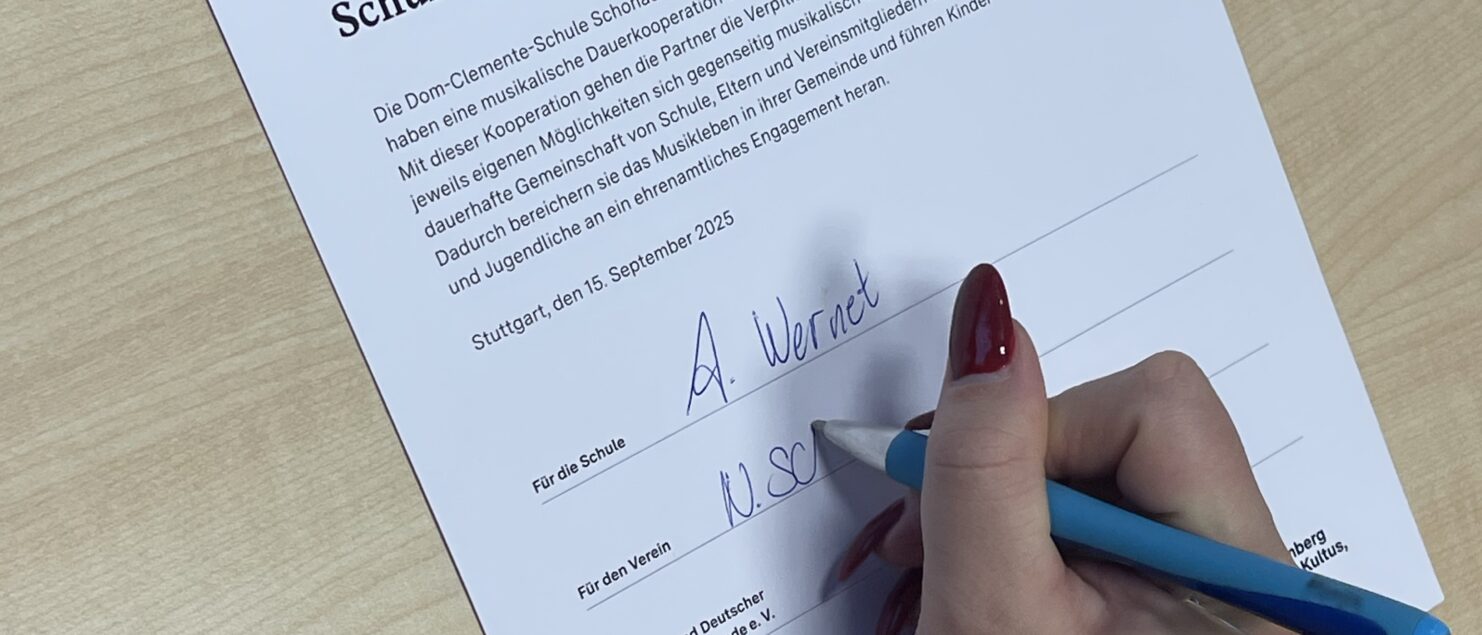 Die Dom-Clemente-Schule
haben eine musikalische Dauerkooperation
Mit dieser Kooperation gehen die Partner die
jeweils eigenen Möglichkeiten sich gegenseitig
dauerhafte Gemeinschaft von Schule, Eltern und Vereinsmitgliedern
Dadurch bereichern sie das Musikleben in ihrer Gemeinde und führen Kinder
und Jugendliche an ein ehrenamtliches Engagement heran.
Stuttgart, den 15. September 2025
A. Wernet
Für die Schule
N. SC
Für den Verein
Deutscher
e. V.
Kultus,